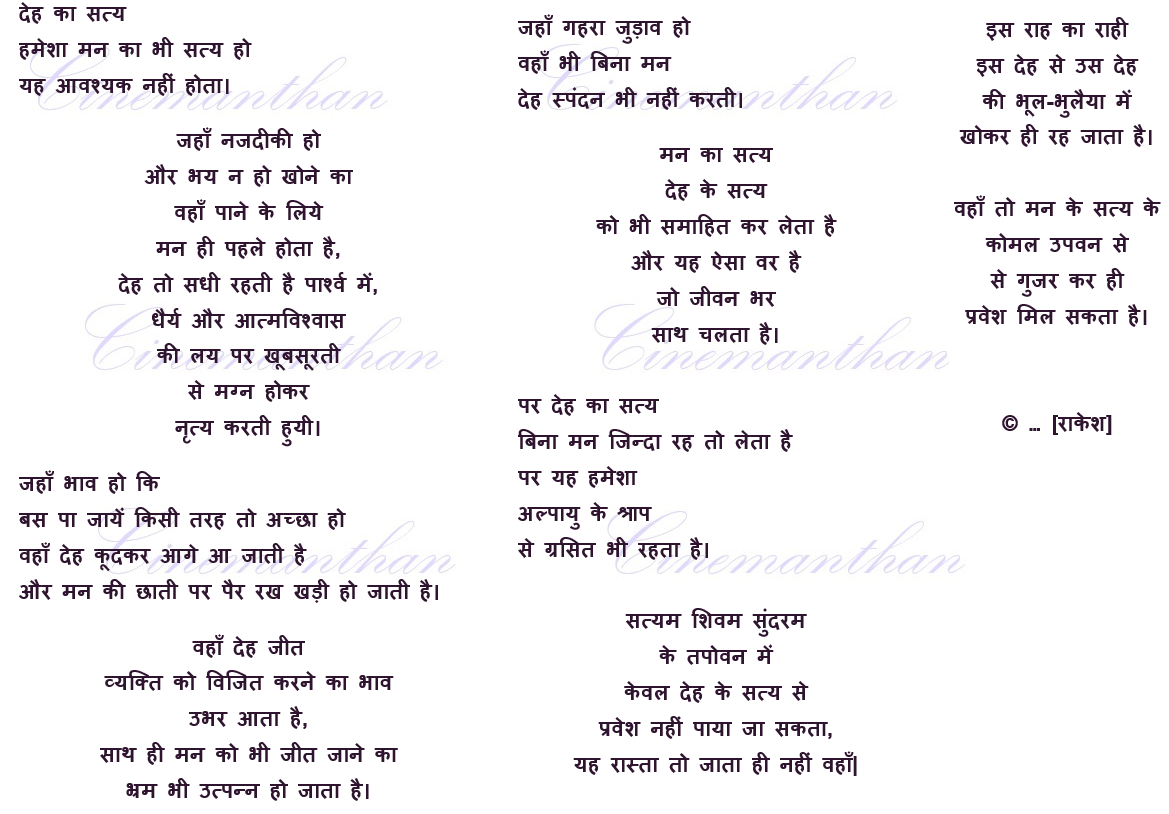 देह का सत्य
हमेशा मन का भी सत्य हो
यह आवश्यक नहीं होता।
जहाँ नजदीकी हो
और भय न हो खोने का
वहाँ पाने के लिये
मन ही पहले होता है,
देह तो सधी रहती है पार्श्व में,
धैर्य और आत्मविश्वास
की लय पर खूबसूरती
से मग्न होकर
नृत्य करती हुयी।
जहाँ भाव हो कि
बस पा जायें किसी तरह तो अच्छा हो
वहाँ देह कूदकर आगे आ जाती है
और मन की छाती पर पैर रख खड़ी हो जाती है।
वहाँ देह जीत
व्यक्ति को विजित करने का भाव
उभर आता है,
साथ ही मन को भी जीत जाने का
भ्रम भी उत्पन्न हो जाता है।
जहाँ गहरा जुड़ाव हो
वहाँ भी बिना मन
देह स्पंदन भी नहीं करती।
मन का सत्य
देह के सत्य
को भी समाहित कर लेता है
और यह ऐसा वर है
जो जीवन भर
साथ चलता है।
पर देह का सत्य
बिना मन जिन्दा रह तो लेता है
पर यह हमेशा
अल्पायु के श्राप
से ग्रसित भी रहता है।
सत्यम शिवम सुंदरम
के तपोवन में
केवल देह के सत्य से
प्रवेश नहीं पाया जा सकता,
यह रास्ता तो जाता ही नहीं वहाँ|
इस राह का राही
इस देह से उस देह
की भूल-भुलैया में
खोकर ही रह जाता है।
वहाँ तो मन के सत्य के
कोमल उपवन से
से गुजर कर ही
प्रवेश मिल सकता है।
© … [राकेश]
Cinemanthan
Cinemanthan
Cinemanthan
Cinemanthan
Cinemanthan
Cinemanthan